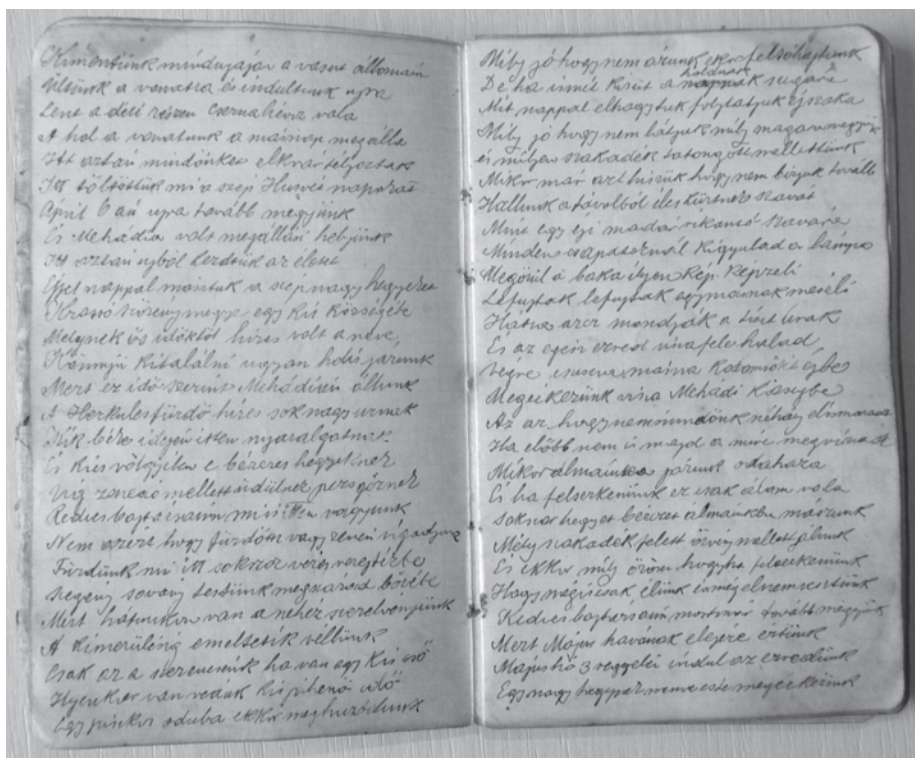 Kimentünk mindnyájan a vasut állomásra
Ültünk a vonatra és indultunk ujra
Lent a déli részen Csernahéviz vala
A hol a vonatunk a másnap megálla
Itt aztán mindönket elkvártélyoztak
Itt töltöttük mi a szép Husvét napokat
April 6 án ujra tovább megyünk
És Mehádia volt megállási helyünk
Itt aztán ujból kezdtük az életet
Éjjel nappal másztuk a szép nagy hegyeket
Krassó Szörény megye egy kis községébe
Melynek ős időktől híres volt a neve,
Könnyü kitalálni ugyan hol is járunk
Mert ez idő szerint Mehádián állunk
A Herkulesfürdő híres sok nagy urnak
Kik béres idején itten nyaralgatnak
És kies völgyében e bérces hegyeknek
Víg zeneszó mellett üdülnek pezsgőznek
Kedves bajtársaim mi is itten vagyunk
Nem azért hogy fürdőtt vagy zenén vigadjunk
Fürdünk mi itt sokszor véres verejtékbe
szegény sovány testünk megszárad bőrébe
Mert hátunkon van a nehéz szerelvényünk
A kimerülésig emeltetik vélünk
Csak az a szerencsénk ha van egy kis eső
Ilyenkor van nekünk kis pihenői idő
Egy piszkos oduba ekkor meghuzódunk
Mily jó hogy nem ázunk ekkor felsóhajtunk
De ha ismét kisüt a holdnak sugára
Mit nappal elhagytuk folytatjuk éjszaka
Mily jó hogy nem látjuk mily magasra megyünk
és milyen szakadék tátongott mellettünk
Mikor már azt hiszük hogy nem birjuk tovább
Hallunk a távolból éles kürtnek szavát
Mint egy éji madár rikantó szavára
Minden csapatornál kigyulad a lámpa
Megörül a baka ilyenkép képzeli
Lefujtak lefujtak egymásnak meséli
Hátra arcz mondják a tiszt urak
És az egész ezred visszafele halad,
végre csuszva mászva kolomökt égbe
Megérkezünk vissza Mehádi községbe
Az az hogy nem mindönk néhány elmarad
Ha előbb nem is majd a mire megvirrad
Mikor álmainkba járunk odahaza
És ha felserkenünk ez csak álom vala
soknar hegyet bércet álmunkba mászunk
Mély szakadék felett örvény mellett állunk
És ekkor mily öröm hogyha felserkenünk
Hogy mégis csak élünk és még elnem estünk
Kedves bajtársaim mostmár tovább megyünk
Mert Május havának elejére értünk
Május hó 3 reggelén indul az ezredünk
Egy nagy hegyre menve este megérkezünk